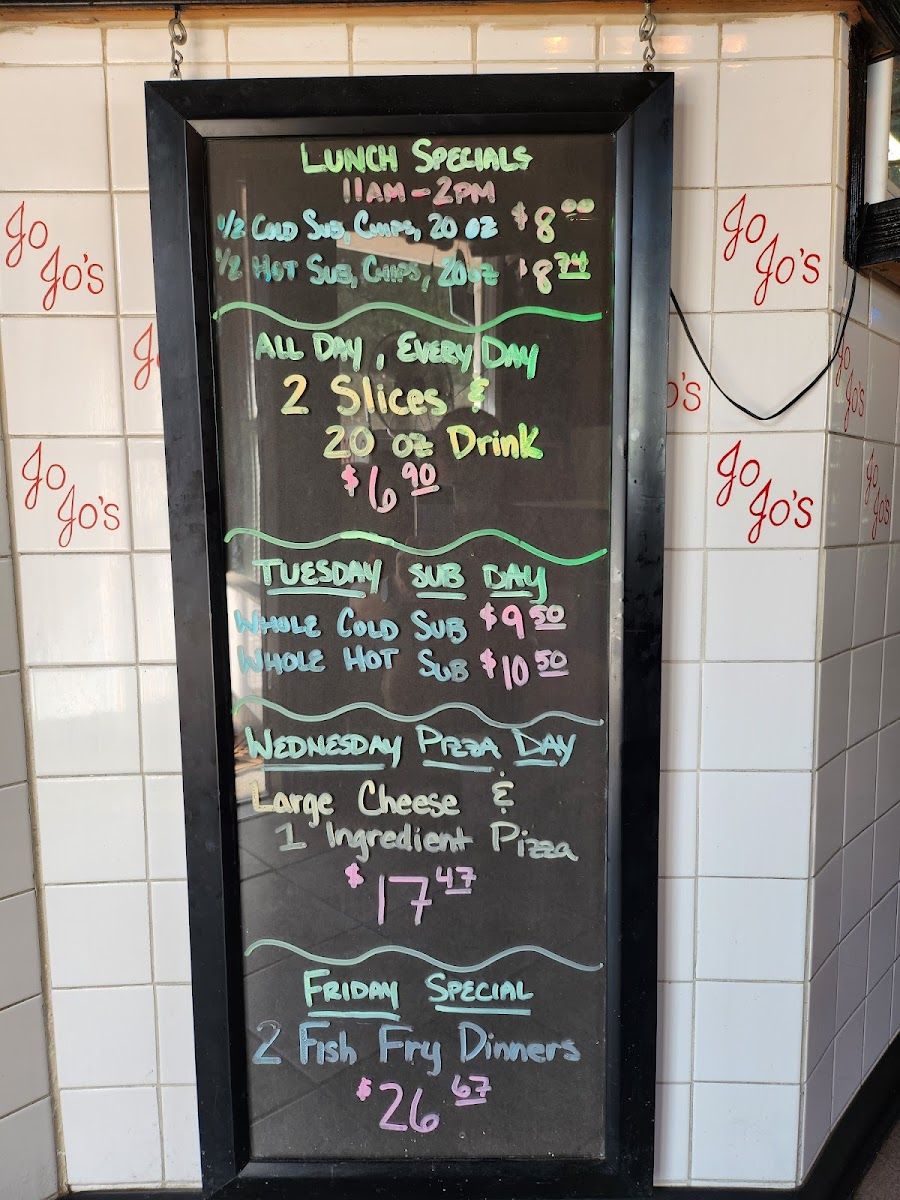 LUNCH SPECIALS
11AM - 2PM
1/2 COLD SUB, CHIPS, 20 OZ $8.00
1/2 HOT SUB, CHIPS, 20 OZ $8.74
ALL DAY, EVERY DAY
2 Slices &
20 oz Drink
$6.90
TUESDAY SUB DAY
WHOLE COLD SUB $9.50
WHOLE HOT SUB $10.50
WEDNESDAY PIZZA DAY
Large Cheese &
1 Ingredient Pizza
$17.47
FRIDAY SPECIAL
2 Fish Fry Dinners
$26.67
Jo
Jo's
Jo
Jo's
Jo
Jo's
Jo
Jo's
Jo
Jo's
Jo
Jo's
J
o's